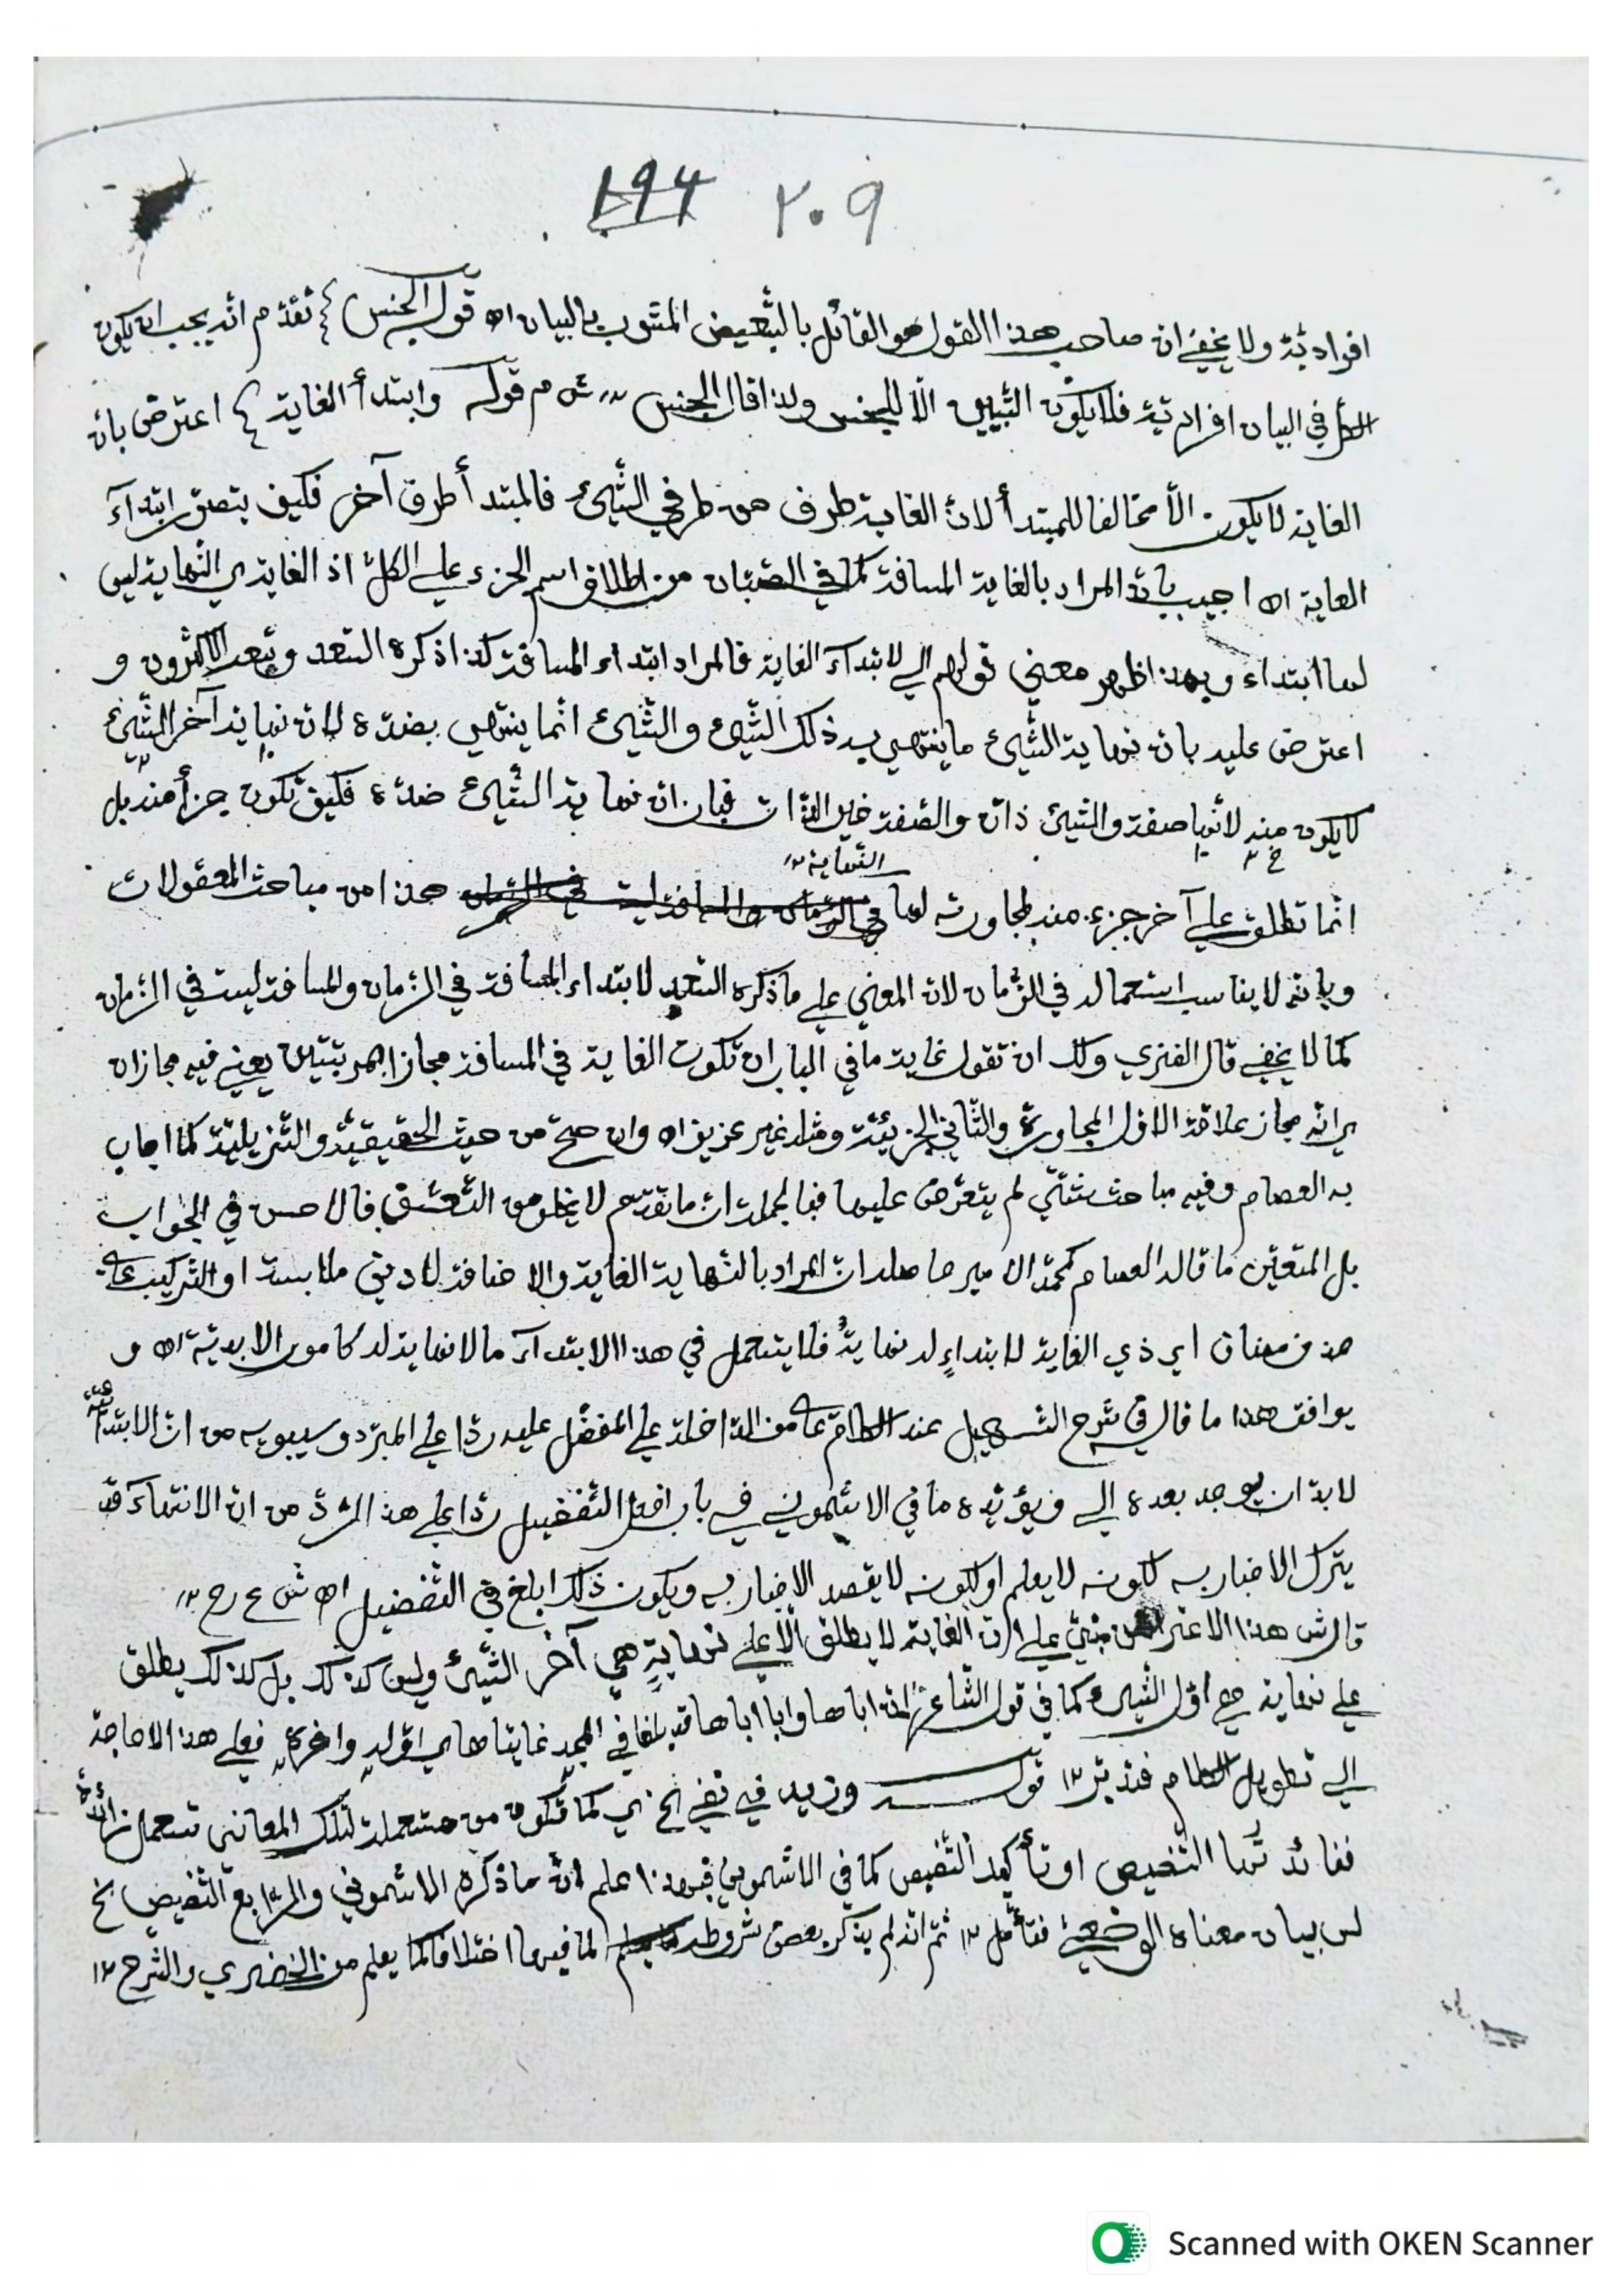 ١٩٤ ٢٠٩
افرادية ولا يخفى ان صاحب هذا القول هو القائل بالتبعيض المشوب بالبيان اه قوله الجنس } تقدم انه يجب ان يكون
الكل في البيان افرادية فلا يكون التبيين الا للجنس ولذا قال الجنس ١٢ ش م قوله وابتدأ الغاية } اعترض بان
الغاية لا يكون الا مخالفا للمبتدأ لان الغاية طرف من طرفي الشيء فالمبتدأ طرف آخر فكيف يتصور ابتدآء
الغاية اه اجيب بان المراد بالغاية المسافة كما في الصبان من اطلاق اسم الجزء على الكل اذ الغاية ي النهاية ليس
لها ابتداء وبهذا ظهر معنى قولهم الى لابتدآء الغاية فالمراد ابتداء المسافة كذا ذكره السعد وتبعه الاكثرون و
اعترض عليه بان نهاية الشيء ما ينتهي به ذلك الشيء والشيء انما ينتهي بضده لان نهاية آخر الشيء
لا يكون منه لانها صفة والشيئ ذات والصفة غير الذات فبان ان نهاية الشيء ضده فكيف تكون جزأ منه بل
انما تطلق على آخر جزء منه لمجاورته لها النهاية ١٢ هذا من مباحث المعقولات
وبانه لا يناسب استعماله في الزمان لان المعنى على ما ذكره السعد لابتداء المسافة في الزمان والمسافة ليست في الزمان
كما لا يخفى قال الفنري ولك ان تقول غاية ما في الباب ان تكون الغاية في المسافة مجازا بمرتبتين يعني فيه مجازان
ي انه مجاز علاقة الاول المجاورة والثاني الجزئية ومثله غير عزيز اه وان صح من حيث الحقيقية والتنزيلية كما اجاب
به العصام وفيه مباحث شتى لم يتعرض عليها فبالجملة ان ما تقدم لا يخلو من التعسف فالاحسن في الجواب
بل المتعين ما قاله العصام كمحمد الامير حاصله ان المراد بالنهاية الغاية والاضافة لادنى ملابسة او التركيب على
حذف مضاف اي ذي الغاية لابتداء له نهاية فلا يستعمل في هذا الابتدآء ما لا نهاية له كامور الابدية اه و
يوافق هذا ما قال في شرح التسهيل عند الكلام على من الداخلة على المفضل عليه ردا على المبرد وسيبويه من ان الابتدائية
لا بد ان يوجد بعده الى ويؤيده ما في الاشموني في باب افعل التفضيل ردا على هذ الرد من ان الانتهاء قد
يترك الاخبار به لكونه لا يعلم او لكونه لا يقصد الاخبار به ويكون ذلك ابلغ في التفضيل اه ش ع رح ١٢
قال ش هذا الاعتراض مبني على ان الغاية لا يطلق الا على نهاية هي آخر الشيئ وليس كذلك بل كذلك يطلق
على نهاية هي اول الشيء كما في قول الشاعر ان اباها وابا اباها قد بلغا في المجد غايتاها اي اوله واخره فعلى هذا لا حاجة
الى تطويل الكلام فتدبر ١٢ قوله وزيد في نفي الخ ي كما تكون من مستعملة لتلك المعاني تستعمل زائدة
ففائدتها التنصيص او تأكيد التنصيص كما في الاشموني فبهذا علم ان ما ذكره الاشموني والرابع التنصيص الخ
ليس بيان معناه الوضعي فتأمل ١٢ ثم انه لم يذكر بعض شروطه لما فيها اختلاف كما يعلم من الخضري والشرح ١٢
Scanned with OKEN Scanner